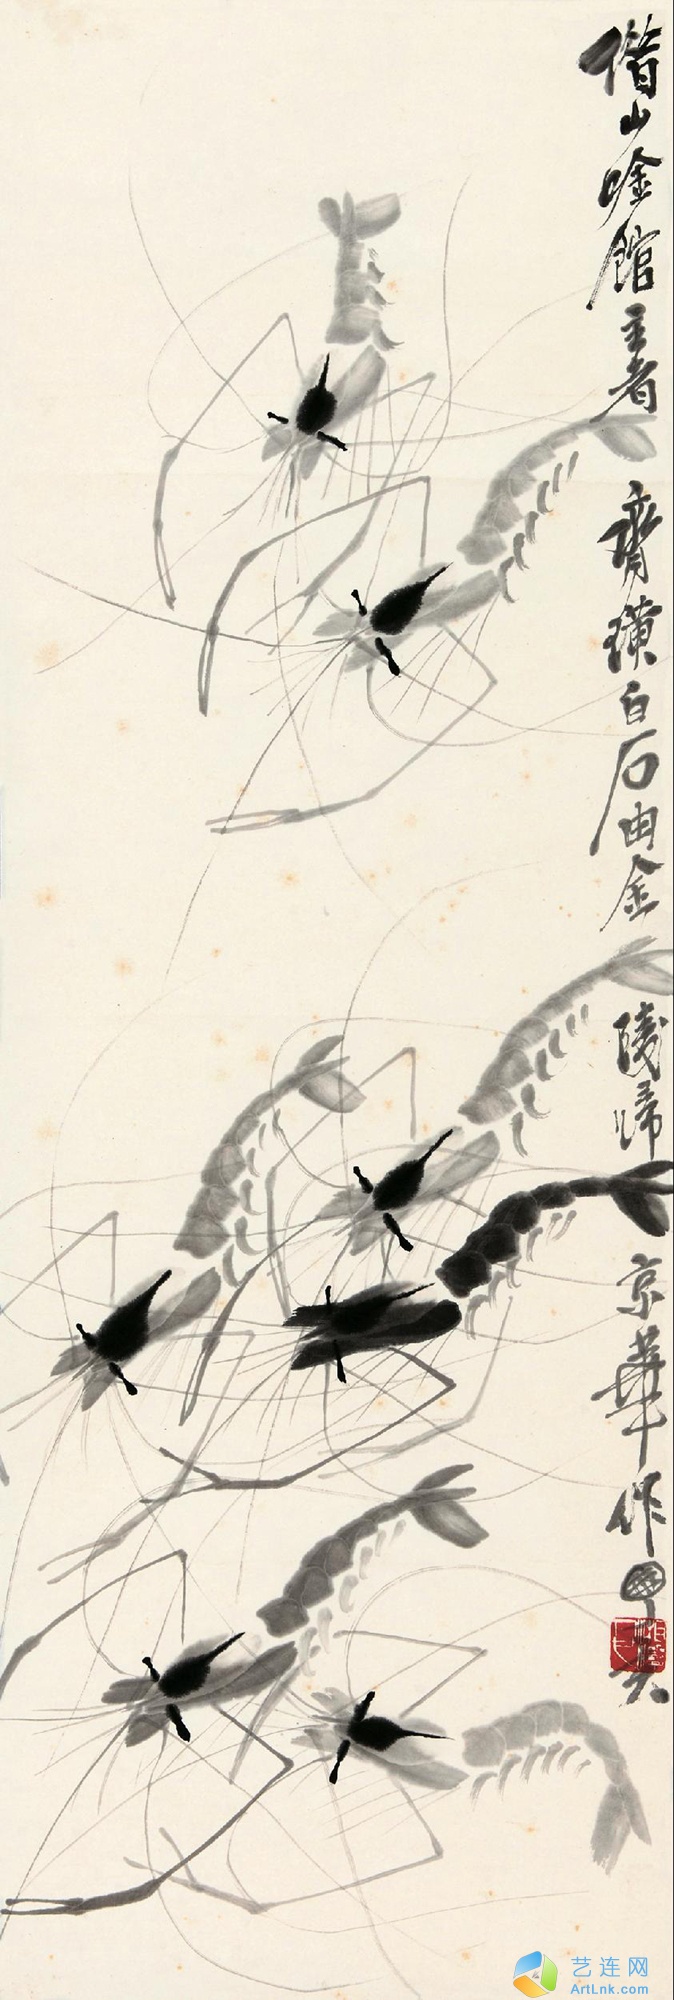 借山唫館主者齊璜白石由金陵歸京華作畫
白石
艺连网
ArtLnk.com